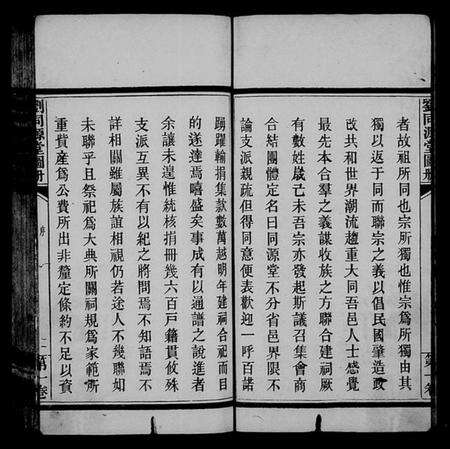 劉同源堂圖册
第一卷
者故祖所同也宗所獨也惟宗爲所獨由其
獨以返于同而聯宗之義以倡民國肇造政
改共和世界潮流趨重大同吾邑人士感覺
最先本合羣之義謀收族之方聯合建祠厥
有數姓歲己未吾宗亦發起斯議召集會商
合結團體定名曰同源堂不分省邑界限不
論支派親疏但得同意便表歡迎一呼百諾
踴躍輸捐集款數萬越明年建祠合祀而目
的遂達焉嘻盛矣事成有以通譜之說進者
余讓未遑惟統核捐冊幾六百戶籍貫攸殊
支派互異不有以紀之將問焉不知語焉不
詳相關雖屬族誼相視仍若途人不幾聯如
未聯乎且祭祀爲大典所關祠規爲家範所
重貲產爲公費所出非釐定條約不足以資
劉同源堂圖册
序
二
第一卷